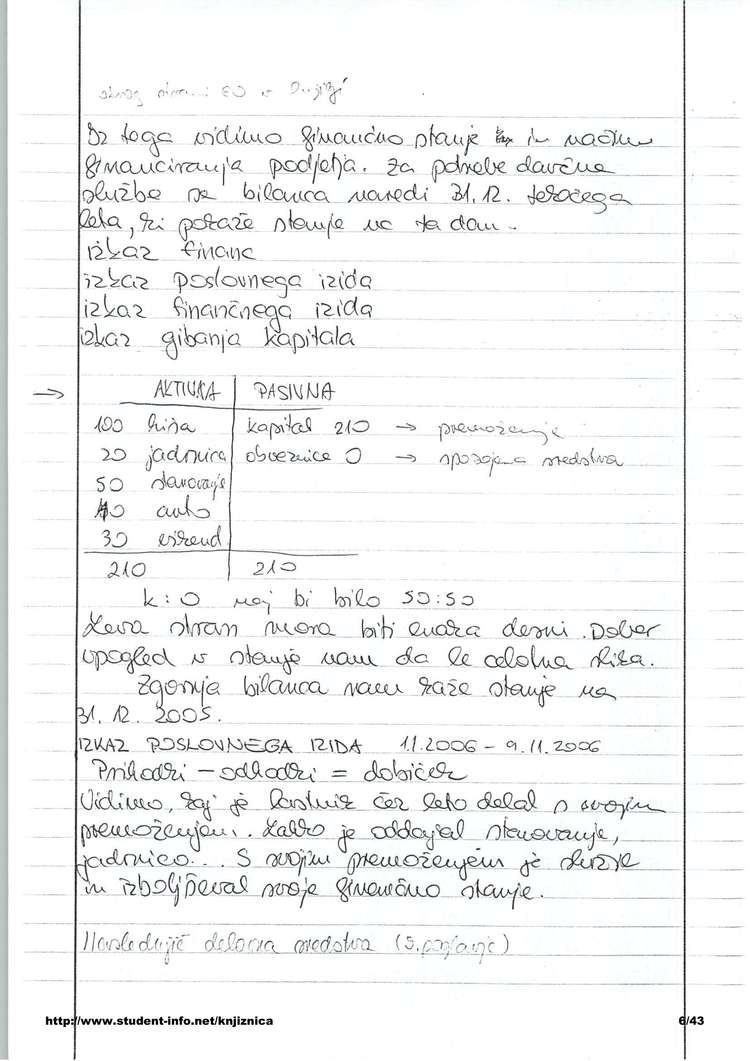 Iz tega vidimo finančno stanje in način
financiranja podjetja. Za potrebe davčne
službe se bilanca naredi 31.12. tekočega
leta, ki pokaže stanje na ta dan.
izkaz financ
izkaz poslovnega izida
izkaz finančnega izida
izkaz gibanja kapitala
→ AKTIVNA PASIVNA
100 hiša kapital 210 → premoženje
20 jadrnica obveznice 0 → sposojena sredstva
50 stanovanje
10 avto
30 vikend
210 210
k : O naj bi bilo 50:50
Leva stran mora biti enaka desni. Dober
vpogled v stanje nam da le celotna slika.
Zgornja bilanca nam kaže stanje na
31. 12. 2005.
IZKAZ POSLOVNEGA IZIDA 1.1.2006 – 9.11.2006
Prihodki – odhodki = dobiček
Vidimo, kaj je lastnik čez leto delal s svojim
premoženjem. Lahko je oddajal stanovanje,
jadrnico... S svojim premoženjem je služil
in izboljševal svoje finančno stanje.
Naslednjič delovna sredstva (5. poglavje)
http://www.student-info.net/knjiznica 6/43